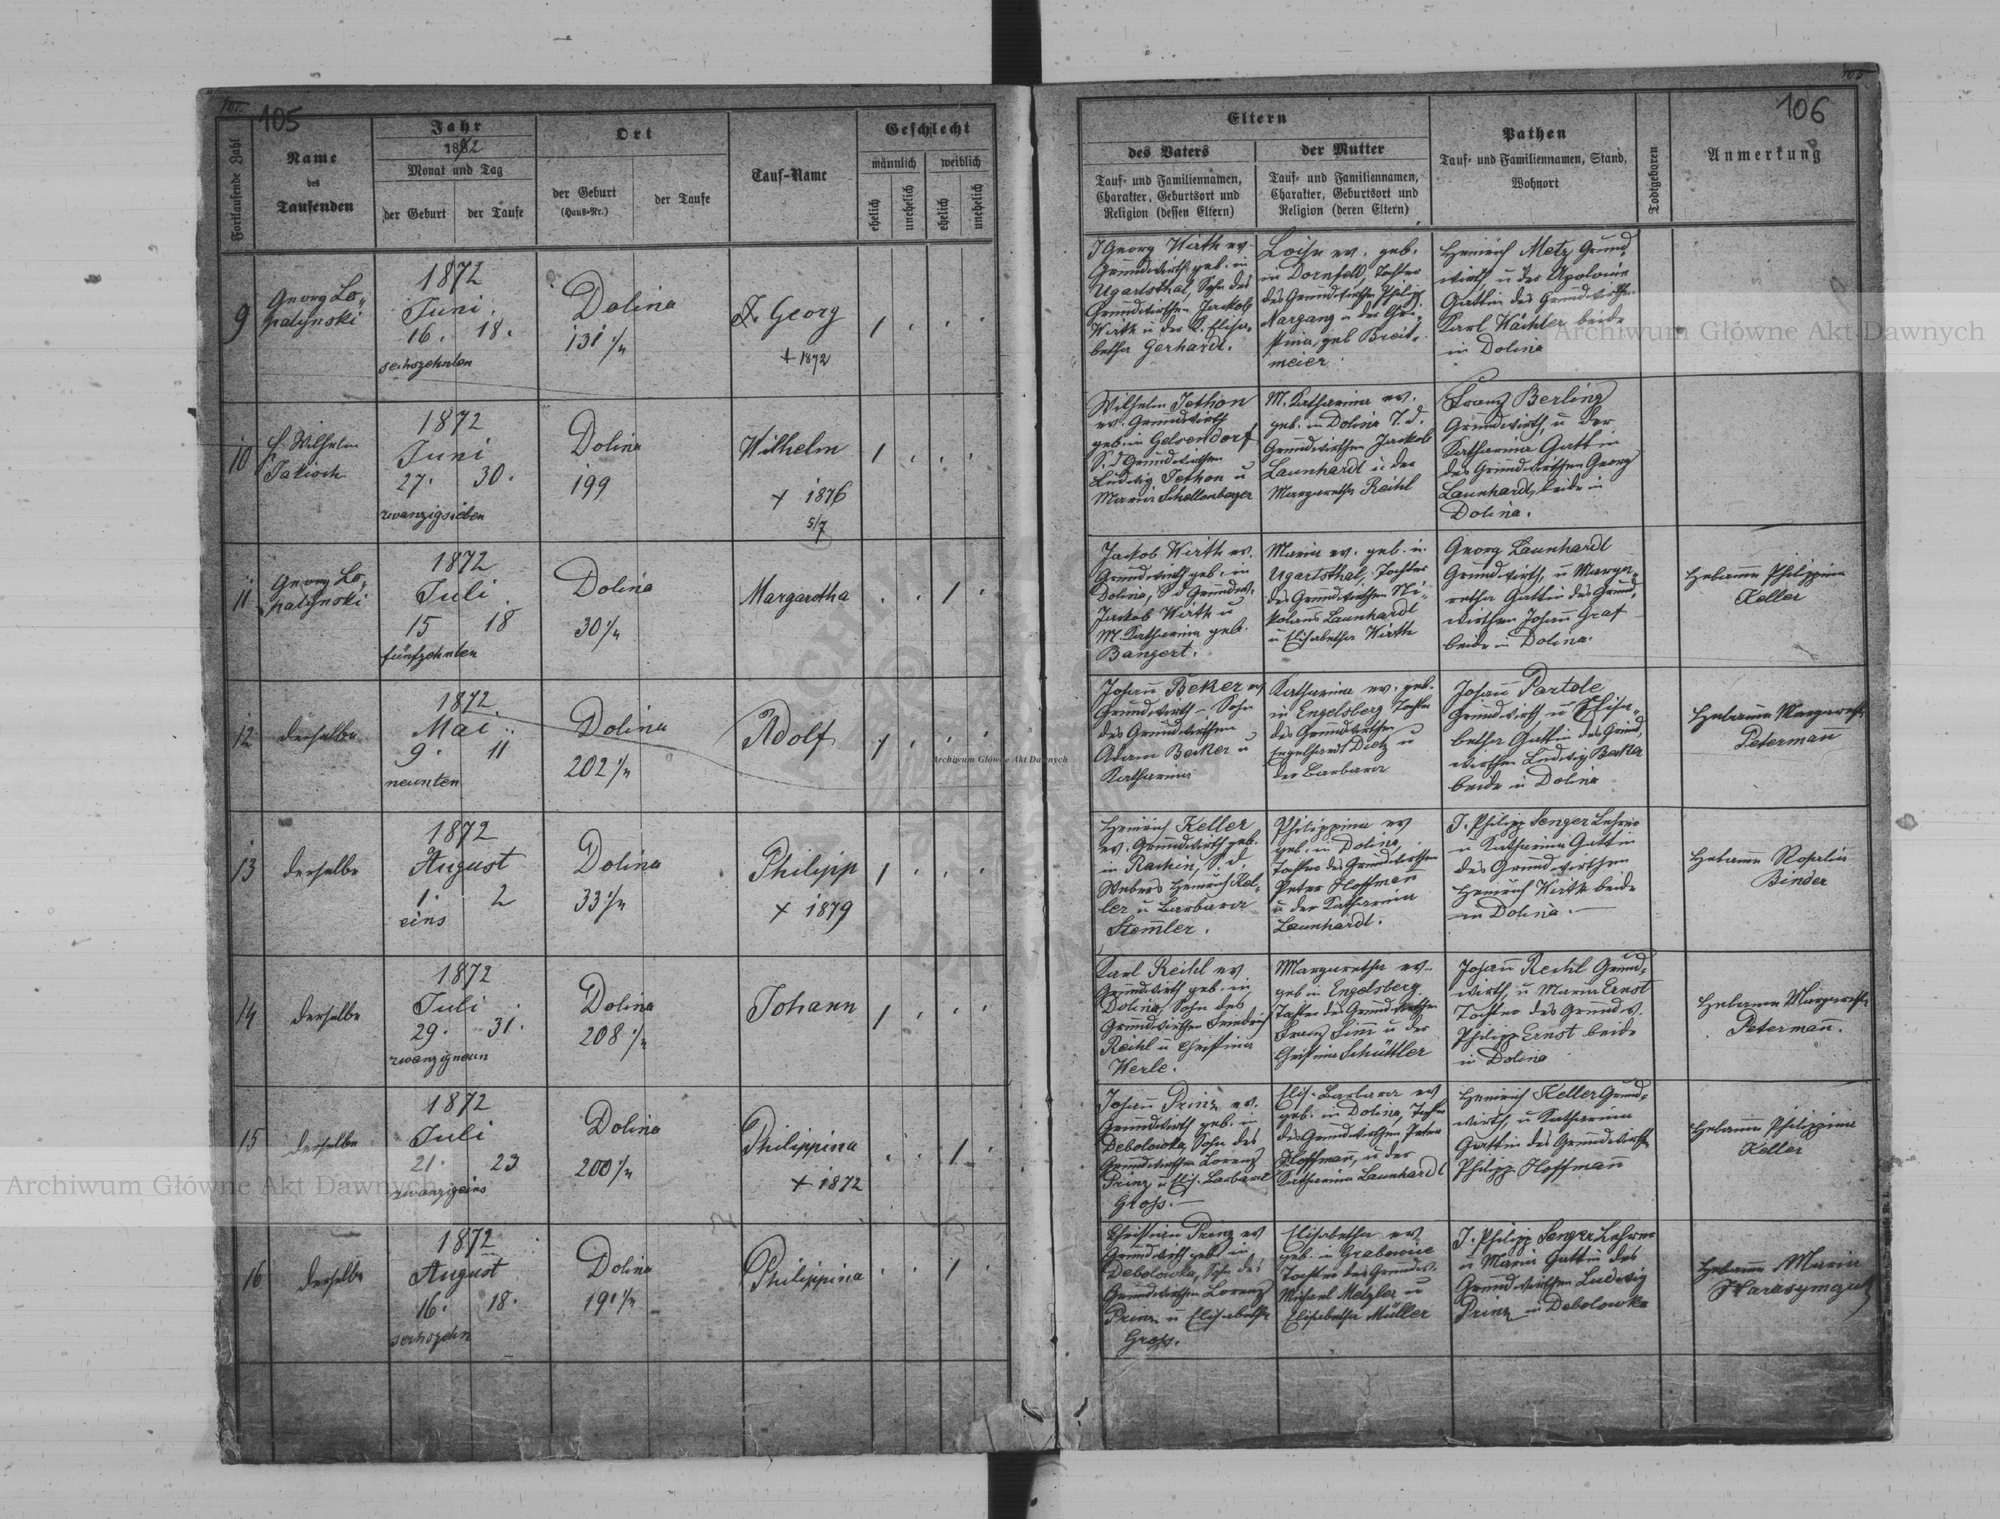 105
106
105
Fortlaufende Zahl
Name
des
Taufenden
Jahr
1872
Monat und Tag
der Geburt
der Taufe
Ort
der Geburt
(Haus-Nr.)
der Taufe
Tauf-Name
Geschlecht
männlich
weiblich
ehelich
unehelich
ehelich
unehelich
Eltern
des Vaters
Tauf- und Familiennamen,
Charakter, Geburtsort und
Religion (dessen Eltern)
der Mutter
Tauf- und Familiennamen,
Charakter, Geburtsort und
Religion (deren Eltern)
Pathen
Tauf- und Familiennamen, Stand,
Wohnort
Todtgeboren
Anmerkung
9
Georg Lo-
patynski
1872
Juni
16. 18.
sechszehnten
Dolina
131
J. Georg
+ 1872
J Georg Wirth ev
Grundwirth geb. in
Ugartsthal, Sohn des
Grundwirthen Jackob
Wirth u der K. Elisa-
betha Gerhardt.
Loise ev. geb.
in Dornfeld, Tochter
des Grundwirthen Philipp
Nargang u der Chri-
stina, geb Breit-
meier
Heinrich Metz Grund-
wirth u der Apolonia
Gattin des Grundwirthen
Karl Wächter beide
in Dolina
10
Wilhelm
1872
Juni
27. 30.
zwanzigsieben
Dolina
199
Wilhelm
+ 1876
5/7
Wilhelm Jethon
ev. Grundwirth
geb. in Gelsendorf
S. d Grundwirthen
Ludwig Jethon u
Maria Schellenberger
M. Katharina ev.
geb. in Dolina T. d.
Grundwirthen Jackob
Launhardt u der
Margaretha Reihl
Franz Berling
Grundwirth, u der
Katharina Gattin
des Grundwirthen Georg
Launhardt, beide in
Dolina.
11
Georg Lo-
patynski
1872
Juli
15 18
fünfzehnten
Dolina
30
Margaretha
Jackob Wirth ev.
Grundwirth geb. in
Dolina, S d Grundw.
Jackob Wirth u
M. Katharina geb.
Bangert.
Maria ev. geb. in
Ugartsthal, Tochter
des Grundwirthen Ni-
kolaus Launhardt
u Elisabetha Wirth
Georg Launhardt
Grundwirth, u Marga-
retha Gattin des Grund-
wirthen Johann Graf
beide in Dolina.
Hebamme Philippina
Keller
12
derselbe
1872
Mai
9. 11
neunten
Dolina
202
Adolf
Johann Beker ev
Grundwirth - Sohn
des Grundwirthen
Adam Becker u
Katharina
Katharina ev. geb.
in Engelsberg Tochter
des Grundwirthen
Engelhardt Dietz u
der Barbara
Johann Partole
Grundwirth u Elisa-
betha Gattin des Grund-
wirthen Ludwig Becker
beide in Dolina
Hebamme Margareth
Peterman
13
derselbe
1872
August
1. 2
eins
Dolina
33
Philipp
+ 1879
Heinrich Keller
ev. Grundwirth geb.
in Rachin, S. d.
Webers Heinrich Kel-
ler u Barbara
Stemler.
Philippina ev
geb. in Dolina,
Tochter des Grundwirthen
Peter Hoffmann
u der Katharina
Launhardt.
J. Philipp Senger Lehrer
u Katharina Gattin
des Grundwirthen
Heinrich Wirth beide
in Dolina.
Hebamme Rosalia
Binder
14
derselbe
1872
Juli
29. 31.
zwanzigneun
Dolina
208
Johann
Karl Reihl ev
Grundwirth geb. in
Dolina, Sohn des
Grundwirthen Friedrich
Reihl u Christina
Werle.
Margaretha ev.
geb in Engelsberg
Tochter des Grundwirthen
Franz Simm u der
Christina Schüttler
Johann Reihl Grund-
wirth, u Maria Ernst
Tochter des Grundw.
Philipp Ernst beide
in Dolina
Hebamme Margareth
Peterman.
15
derselbe
1872
Juli
21. 23
zwanzigeins
Dolina
200
Philippina
+ 1872
Johann Prinz ev.
Grundwirth geb. in
Debolowka, Sohn des
Grundwirthen Lorenz
Prinz u Elis. Barbara
Gross.
Elis. Barbara ev
geb. in Dolina, Tochter
des Grundwirthen Peter
Hoffmann, u der
Katharina Launhardt
Heinrich Keller Grund-
wirth, u Katharina
Gattin des Grundwirth
Philipp Hoffmann
Hebamme Philippina
Keller
16
derselbe
1872
August
16. 18.
sechszehn
Dolina
191
Philippina
Christian Prinz ev
Grundwirth geb. in
Debolowka, Sohn des
Grundwirthen Lorenz
Prinz u Elisabetha
Gross.
Elisabetha ev
geb. in Grabowice
Tochter des Grundw.
Michael Metzler u
Elisabetha Müller
J. Philipp Senger Lehrer
u Maria Gattin des
Grundwirthen Ludwig
Prinz in Debolowka
Hebamme Maria
Archiwum Główne Akt Dawnych
Archiwum Główne Akt Dawnych
Archiwum Główne Akt Dawnych